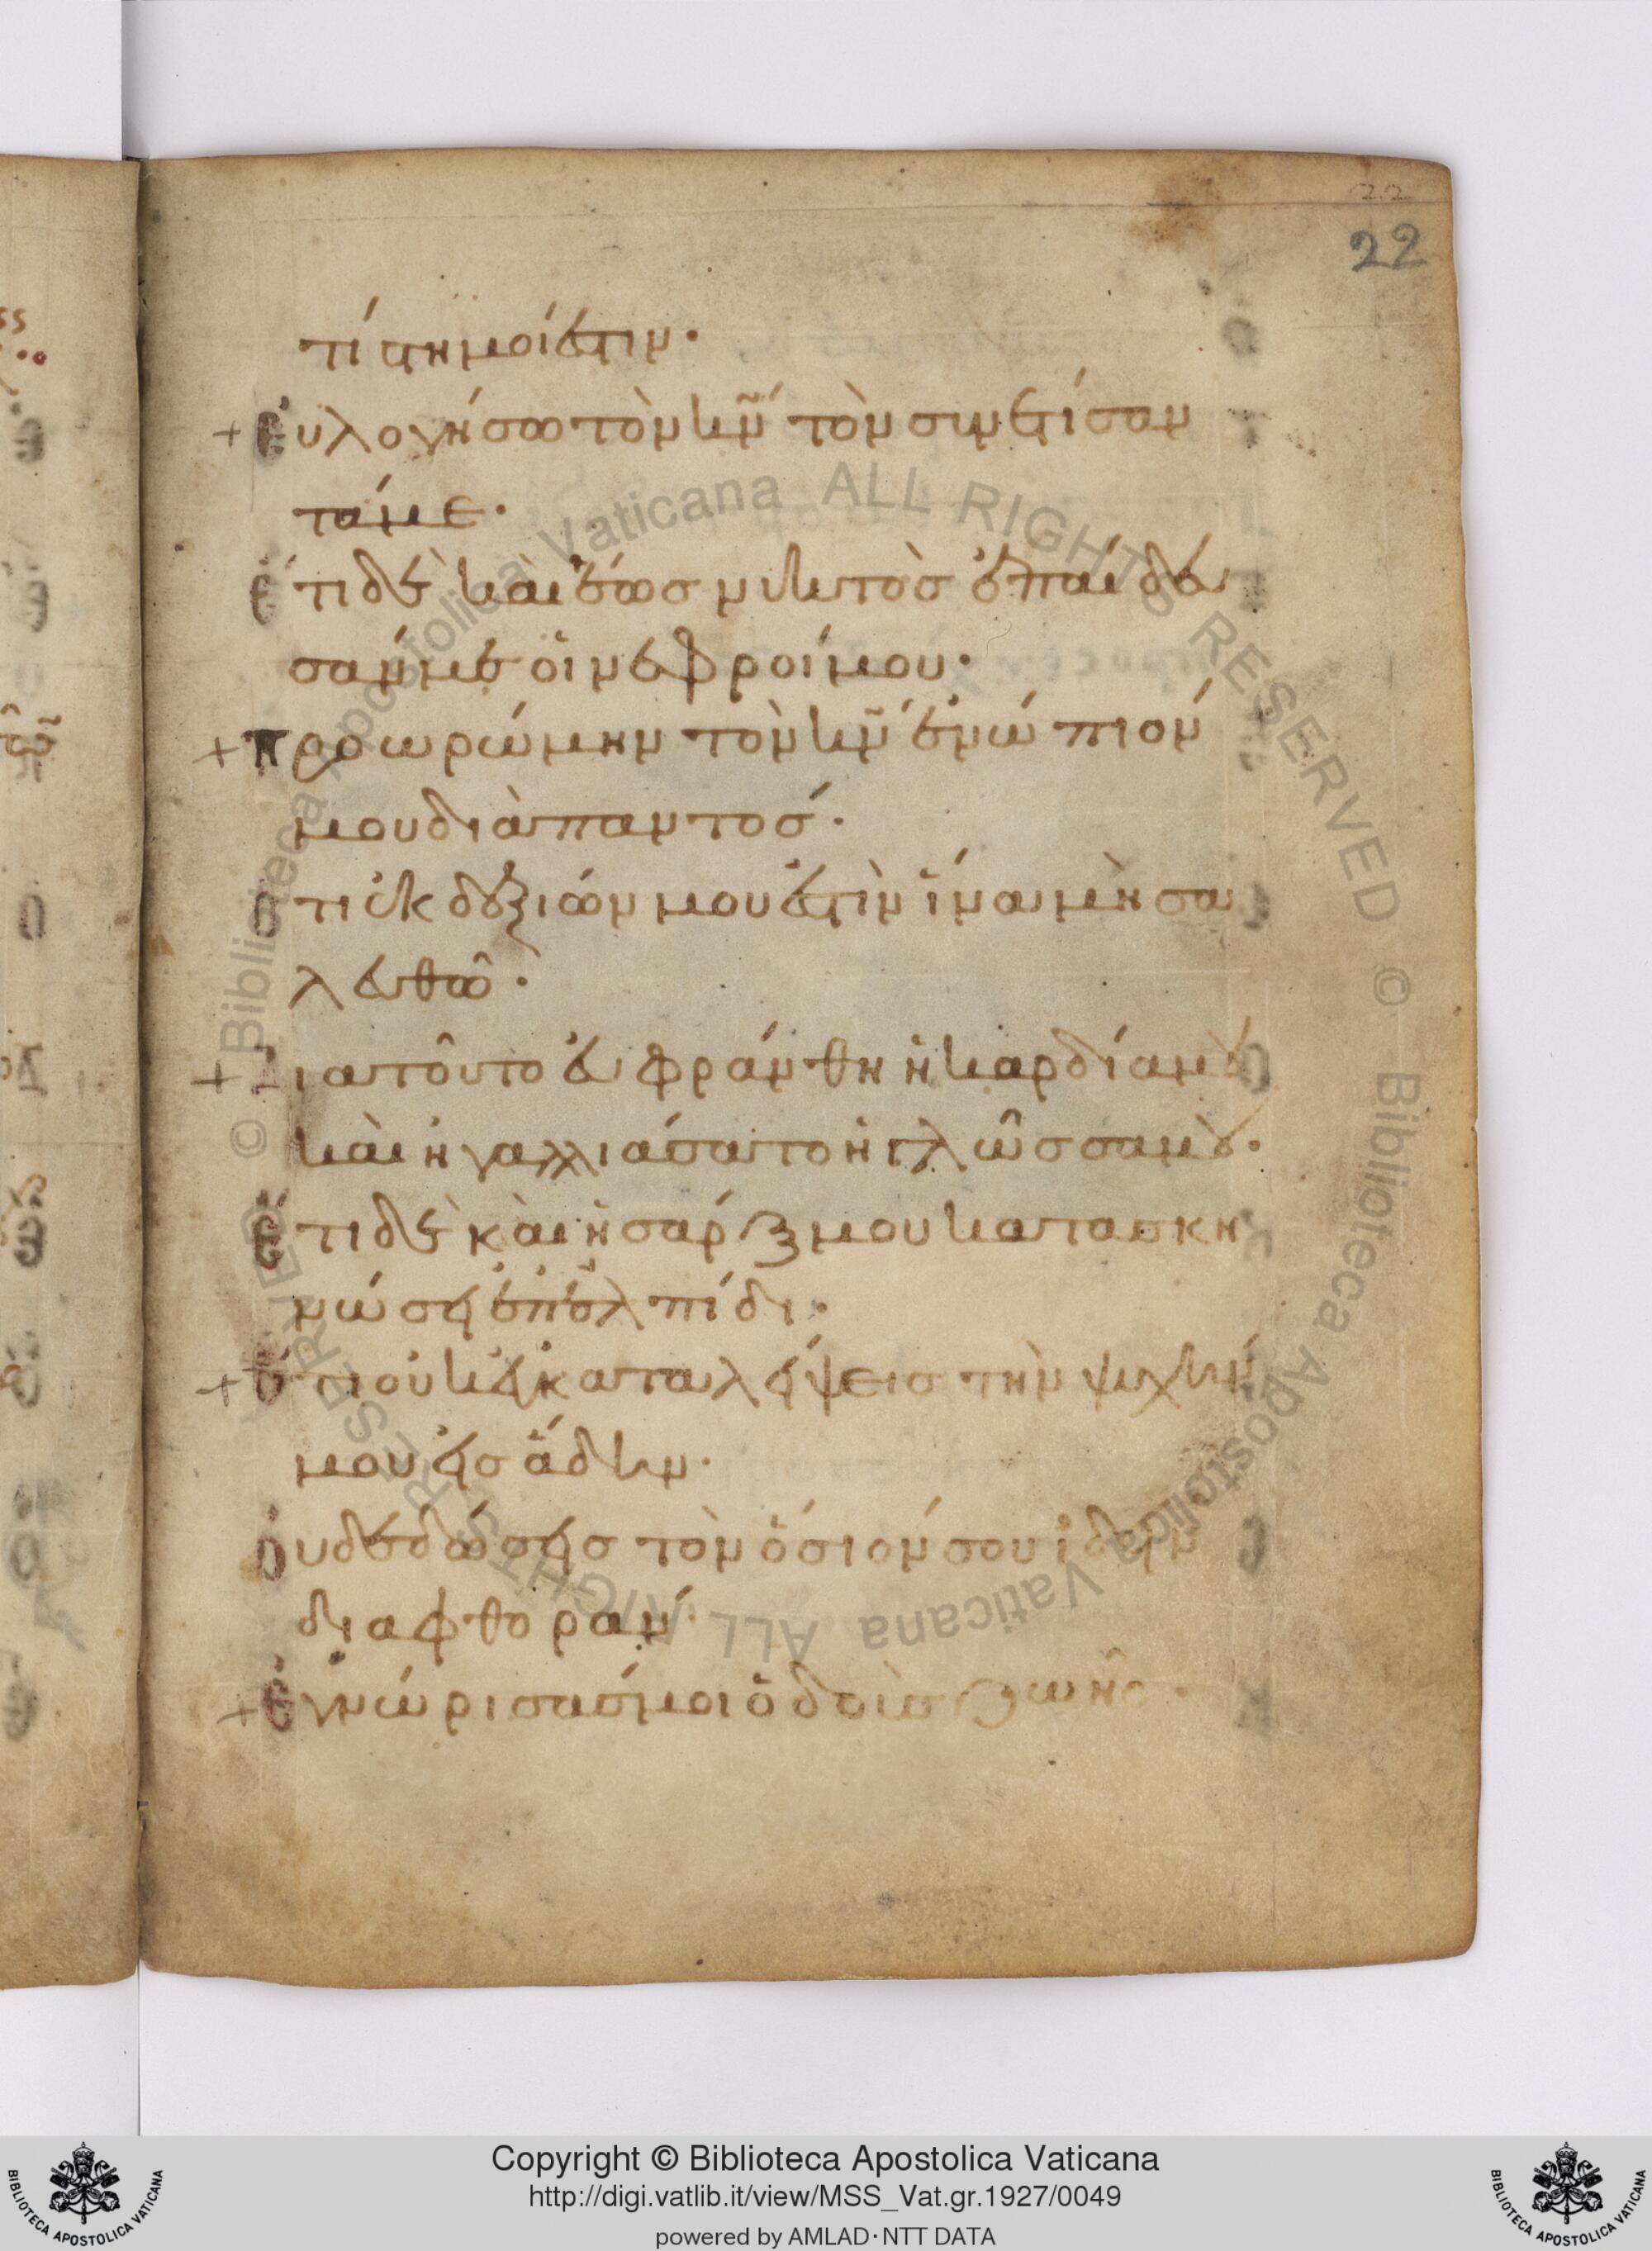 22
22
τί στημοί ἐστιν·
+ εὐλογήσω τὸν κν̃ τὸν συνετίσαν
τά με·
ἔτι δὲ καὶ ἕως νυκτὸσ ἐπαίδευ
σάν με οἱ νεφροί μου·
+ προωρώμην τὸν κν̃ ἐνώπιόν
μου διὰ παντοσ·
ὅτι ἐκ δεξιών μου ἐστὶν ἵνα μὴ σα
λευθῶ·
+ διατοῦτο εὐφράνθη ἡ καρδία μου
καὶ ἠγαλλιάσατο ἡ γλῶσσα μου·
ἔτι δὲ καὶ ἡ σάρξ μου κατασκη
νώσει ἐπ' ἐλπίδι·
+ ὅτι οὐκ ἐγκαταλείψεισ τὴν ψυχήν
μου εἰσ ἅδην·
οὐδὲ δώσεισ τὸν ὅσιόν σου ἰδεῖν
διαφθοράν·
+ ἐγνώρισάσ μοι ὁδοὺσ ζωῆσ·
© Biblioteca Apostolica Vaticana ALL RIGHTS RESERVED © Biblioteca Apostolica Vaticana ALL RIGHTS RESERVED
Copyright © Biblioteca Apostolica Vaticana
http://digi.vatlib.it/view/MSS_Vat.gr.1927/0049
powered by AMLAD·NTT DATA
BIBLIOTECA APOSTOLICA VATICANA
BIBLIOTECA APOSTOLICA VATICANA